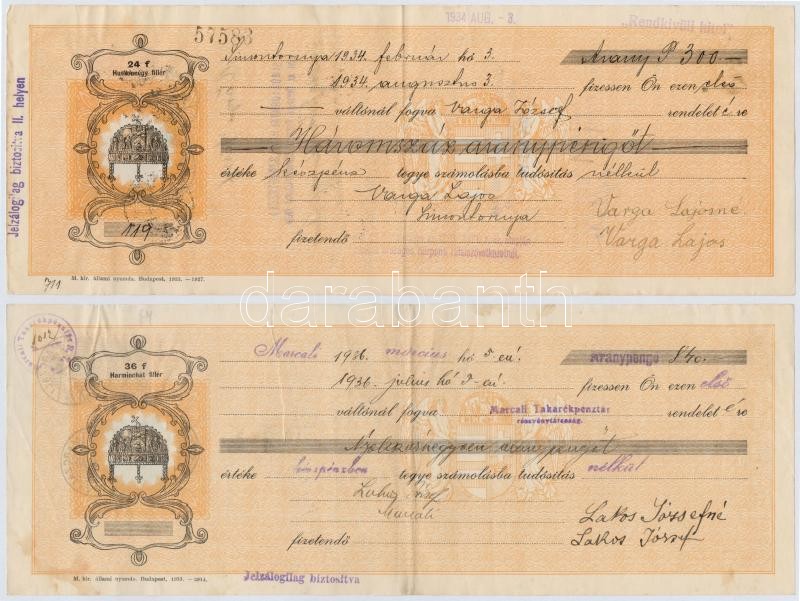 1934 AUG. - 3.
"Rendkívüli hitel"
57583
24 f
Huszonnégy fillér
Simontornya 1934. február hó 3. Arany P 300
1934. augusztus 3. fizessen Ön ezen első
váltónál fogva Varga József rendelet é re
Háromszáz aranypengőt
értéke készpénz tegye számolásba tudósítás nélkül
Varga Lajos
Simontornya
fizetendő
Varga Lajosne
Varga Lajos
Jelzálogilag biztosítva II. helyen
119
711
M. kir. állami nyomda. Budapest, 1933. —1927.
darabanth
36 f
Harminchat fillér
Marcali 1936 március hó 5-én. Aranypengő 840.
1936. július hó 5-én. fizessen Ön ezen első
váltónál fogva Marcali Takarékpénztár rendelet é re
részvénytársaság.
Nyolcszáznegyven aranypengőt
értéke készpénzben tegye számolásba tudósítás nélkül
Lakos József
Marcali
fizetendő
Lakos Józsefné
Lakos József
M. kir. állami nyomda. Budapest, 1933. —2814.
Jelzálogilag biztosítva